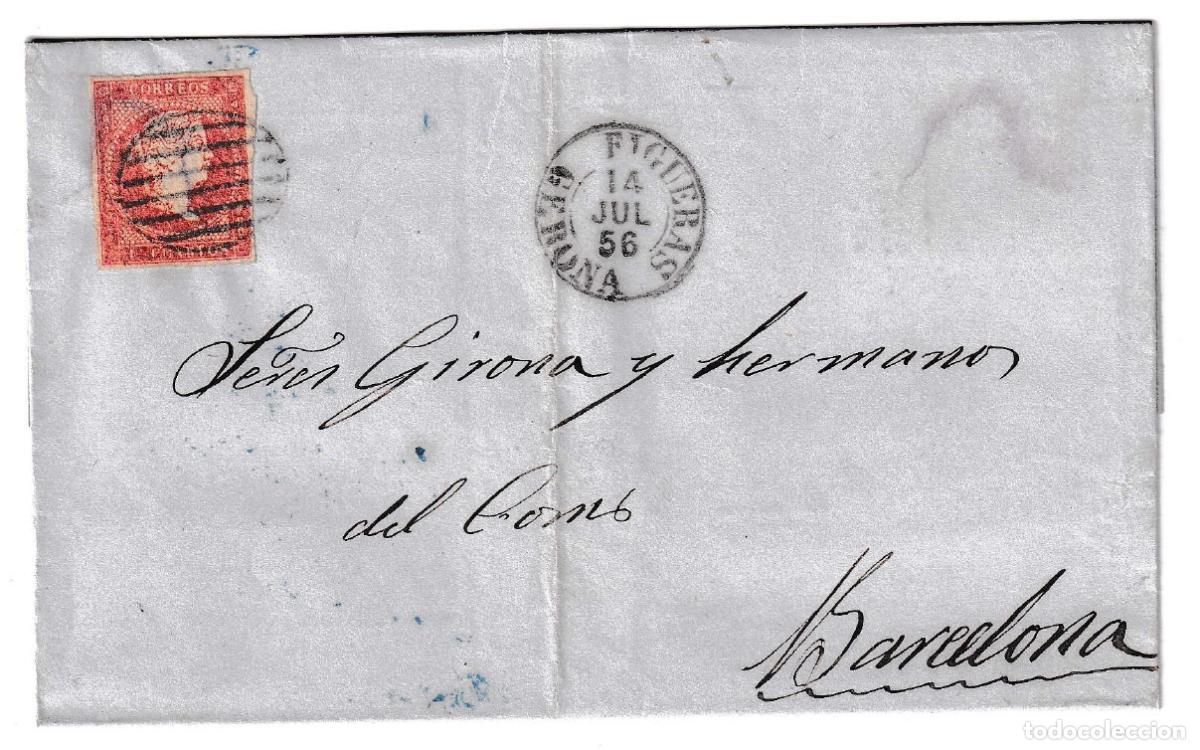 CORREOS
FIGUERAS
14
JUL
56
GERONA
Señres Girona y hermanos
del Comº
Barcelona
todocoleccion